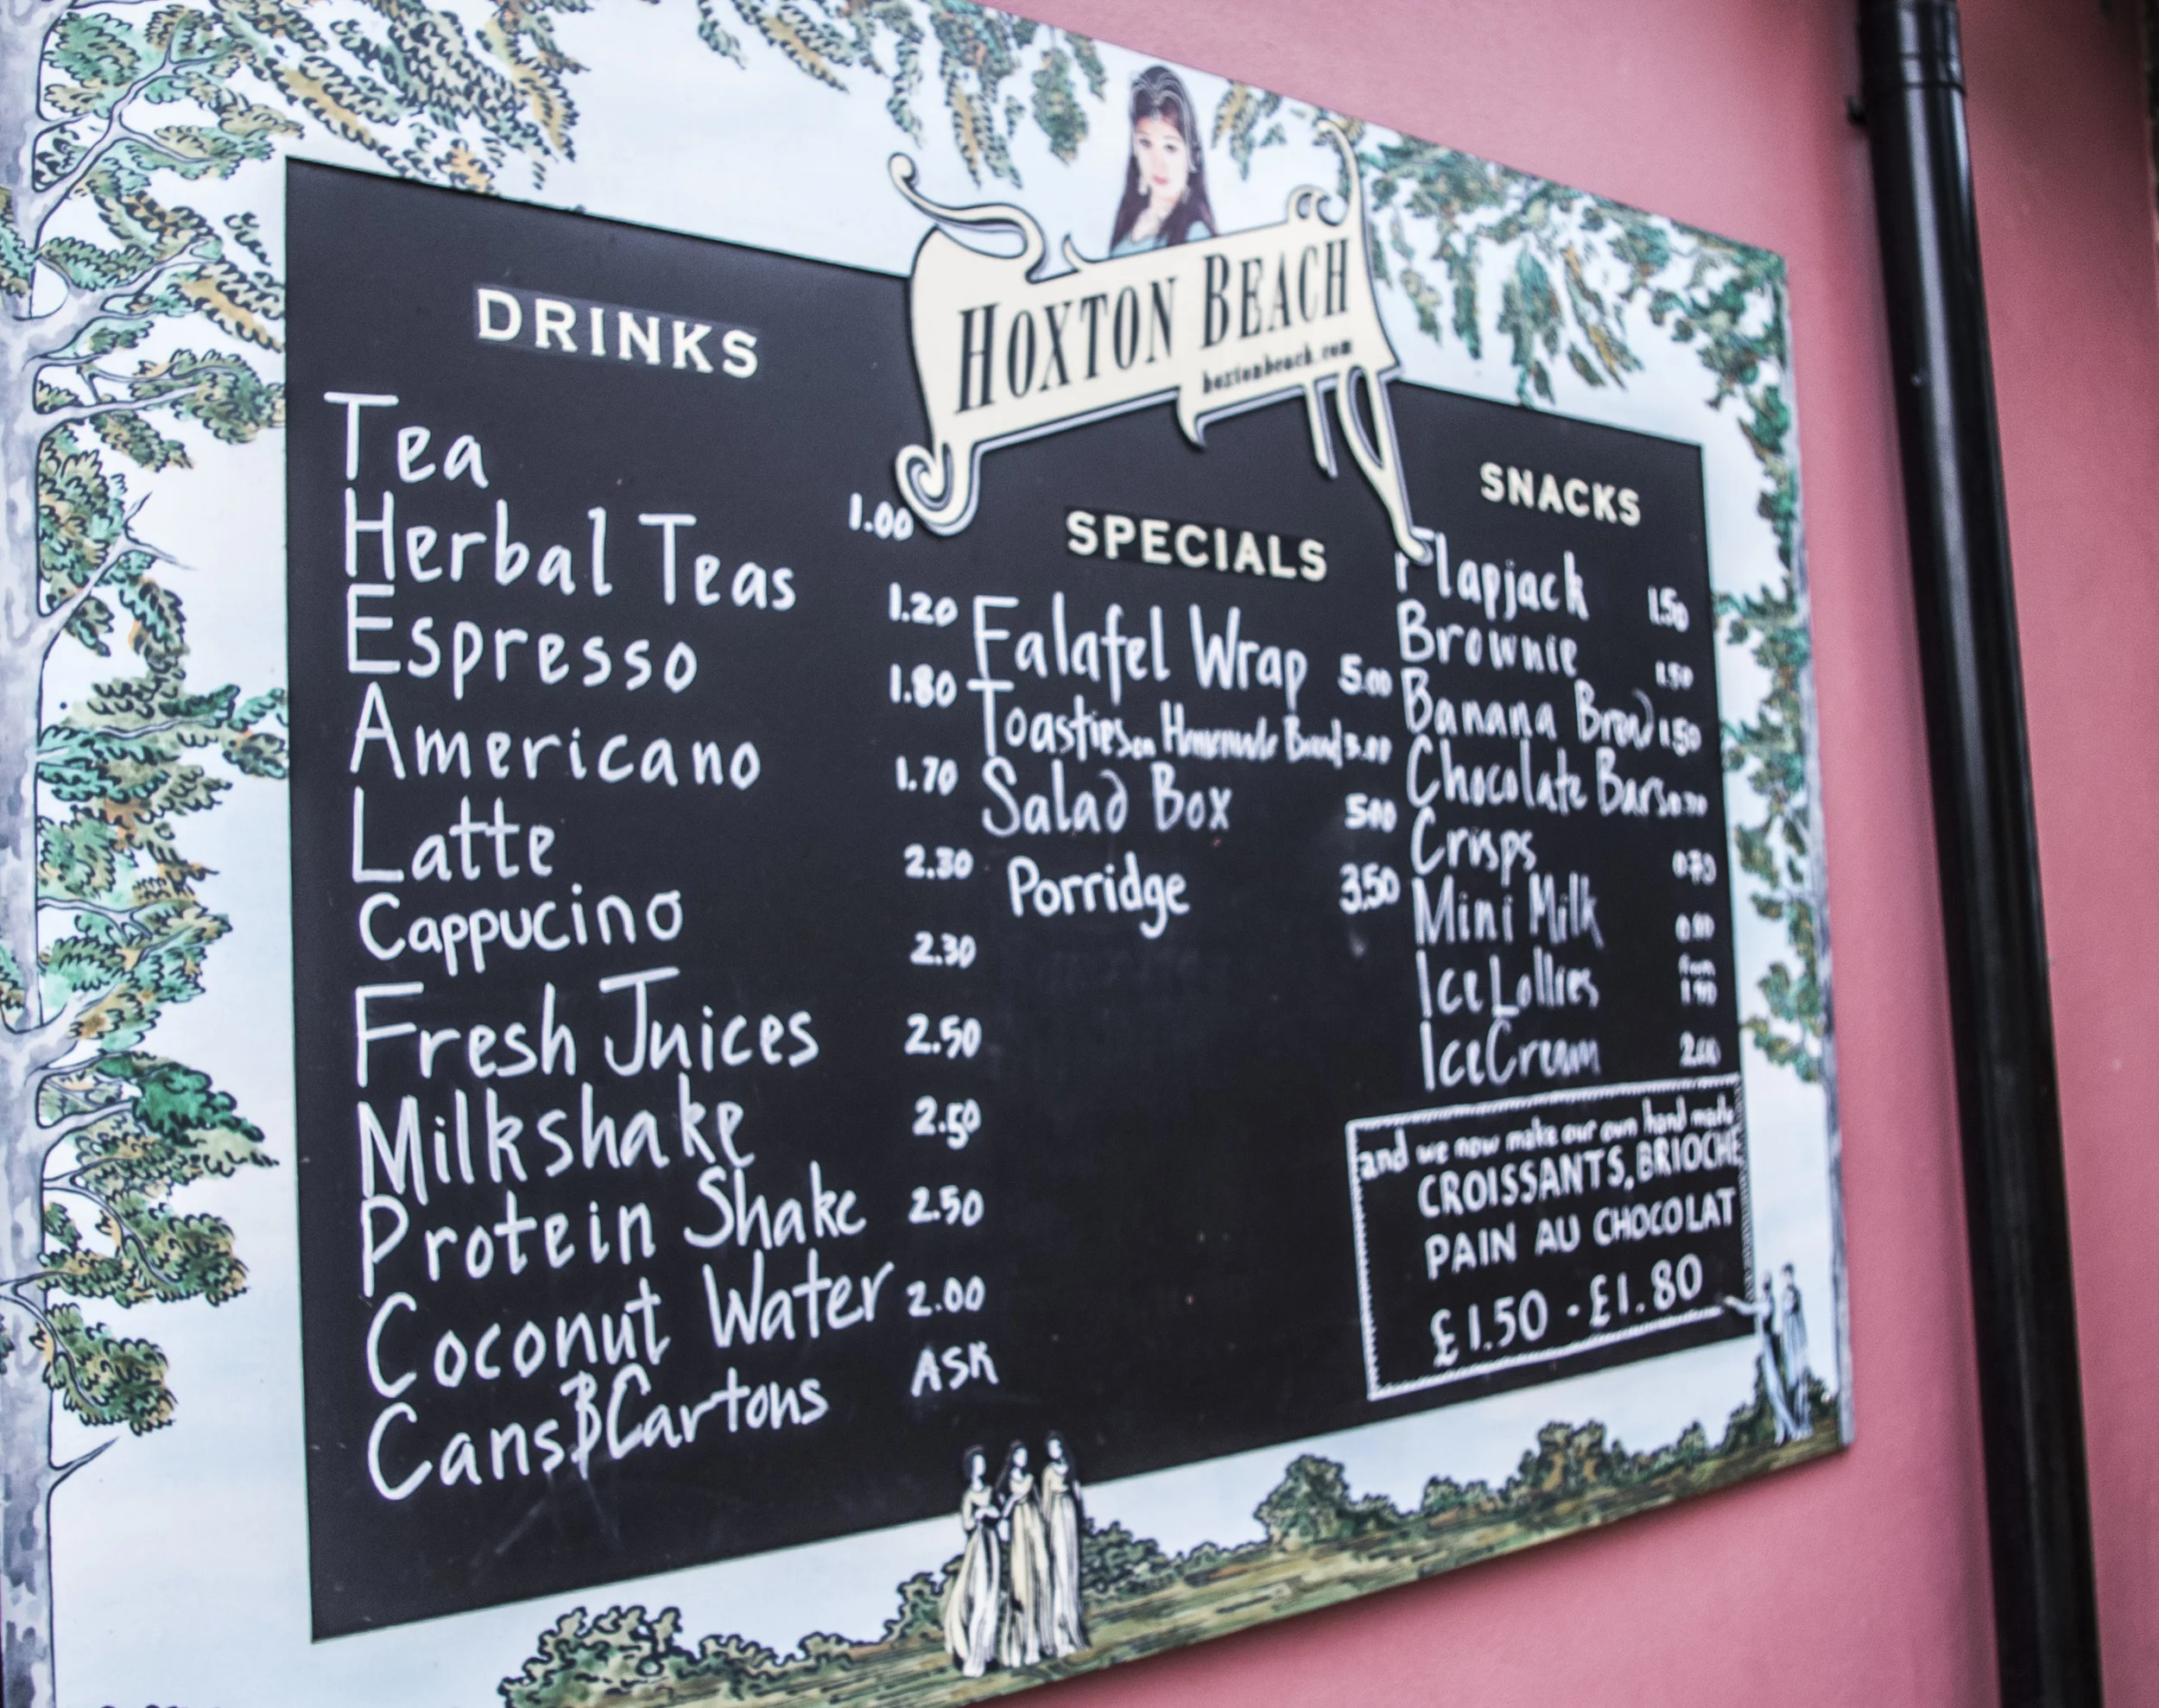 HOXTON BEACH
hoxtonbeach.com
DRINKS
Tea 1.00
Herbal Teas 1.20
Espresso 1.80
Americano 1.70
Latte 2.30
Cappucino 2.30
Fresh Juices 2.50
Milkshake 2.50
Protein Shake 2.50
Coconut Water 2.00
Cans & Cartons ASK
SPECIALS
Falafel Wrap 5.00
Toasties on Homemade Bread 3.00
Salad Box 5.00
Porridge 3.50
SNACKS
Flapjack 1.50
Brownie 1.50
Banana Bread 1.50
Chocolate Bars
Crisps
Mini Milk
Ice Lollies from
Ice Cream 2.00
and we now make our own hand made
CROISSANTS, BRIOCHE
PAIN AU CHOCOLAT
£1.50 - £1.80